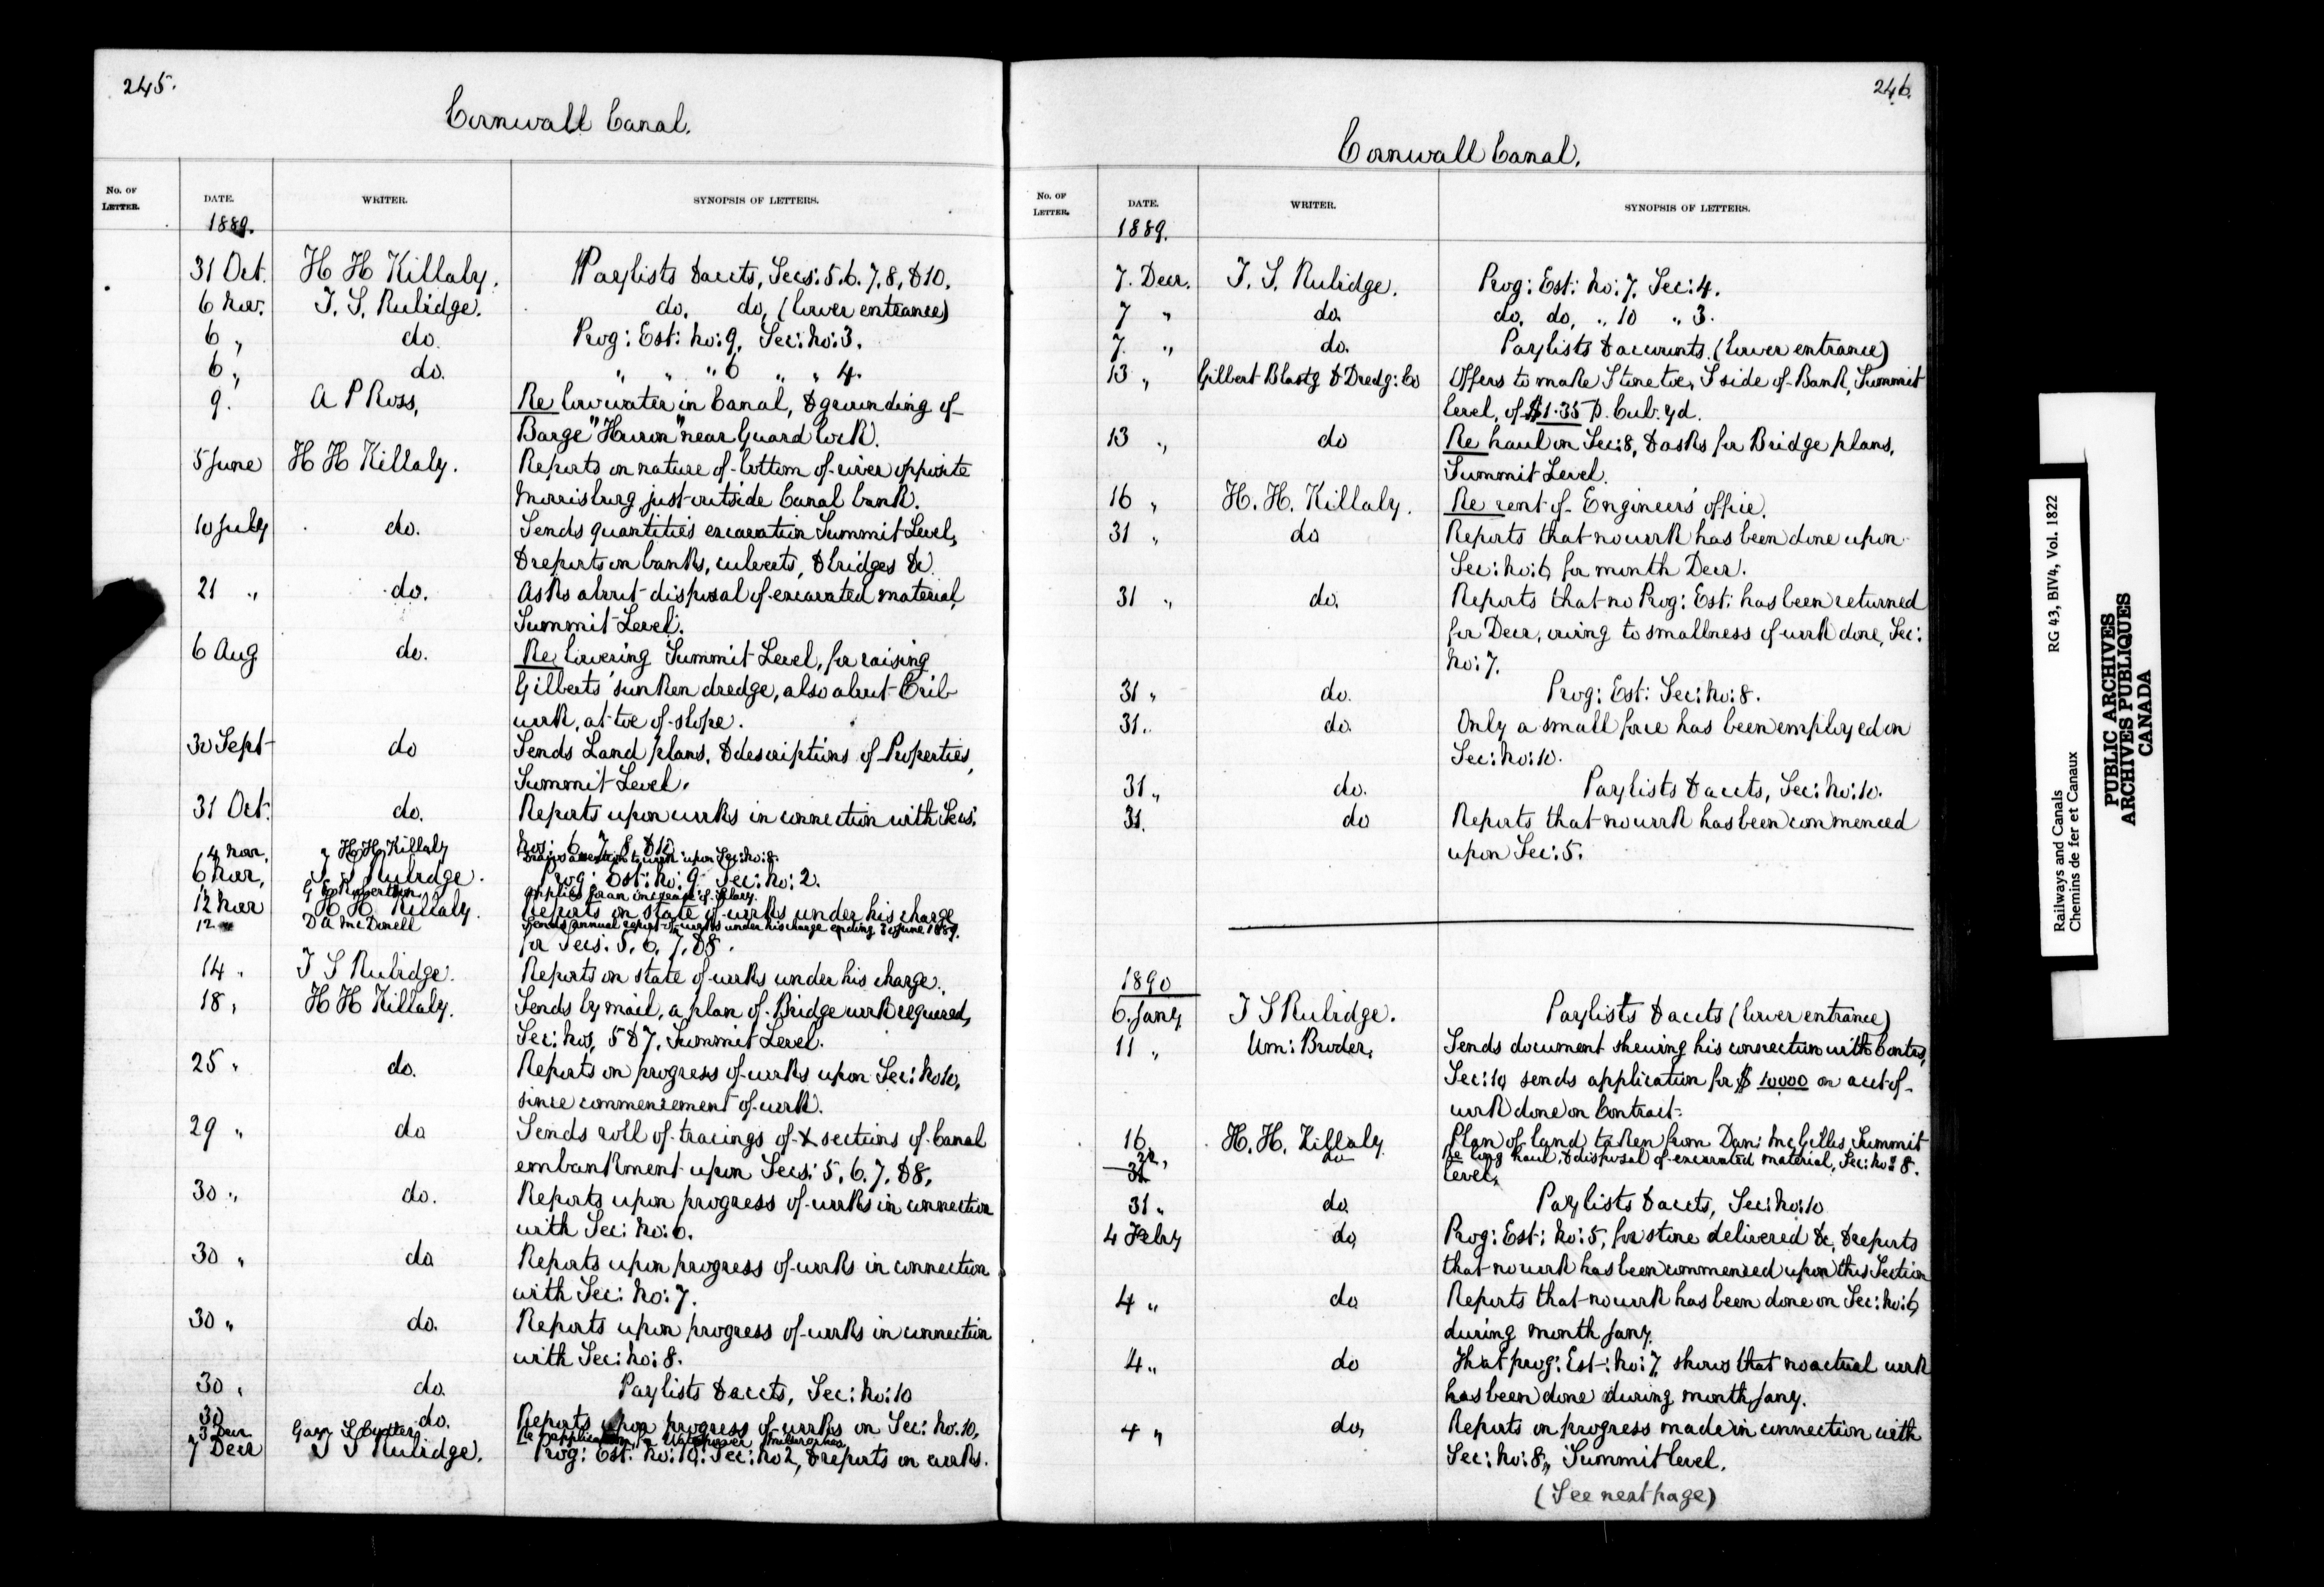 245.
Cornwall Canal.
No. OF LETTER. DATE. WRITER. SYNOPSIS OF LETTERS.
1889.
31 Oct. H H Killaly. Paylists & accts, Secs: 5.6.7.8, & 10.
6 Nov. T. S. Rubidge. do. do, (lower entrance)
6 " do. Prog: Est: No: 9, Sec: No: 3.
6 " do. " " " 6 " " 4.
9. A P Ross, Re low water in Canal, & grounding of
Barge "Huron" near Guard Lock.
5 June H H Killaly. Reports on nature of bottom of river opposite
Morrisburg, just outside Canal bank.
10 July do. Sends quantities excavation Summit Level,
& reports on banks, culverts, & bridges &c.
21 " do. Asks about disposal of excavated material,
Summit Level.
6 Aug do. Re lowering Summit Level, for raising
Gilberts' sunken dredge, also about Crib
work, at toe of slope.
30 Sept do Sends Land plans, & descriptions of Properties,
Summit Level.
31 Oct. do. Reports upon works in connection with Secs:
Nos: 6, 7, 8, & 10
4 Nov, H H Killaly Draws attention to work upon Sec: No: 8.
6 Nov, T S Rubidge. Prog: Est: No: 9 Sec: No: 2.
G Robertson applies for an increase of Salary.
12 Nov H H Killaly. Reports on state of works under his charge
12 " D A McDonell Sends annual report of works under his charge ending 30 June 1889.
for Secs: 5, 6, 7, & 8.
14 " T S Rubidge. Reports on state of works under his charge.
18 " H H Killaly. Sends by mail, a plan of Bridge work required,
Sec: Nos, 5 & 7, Summit Level.
25 " do. Reports on progress of works upon Sec: No 10,
since commencement of work.
29 " do Sends roll of tracings of X sections of Canal
embankment upon Secs: 5, 6, 7, & 8,
30 " do. Reports upon progress of works in connection
with Sec: No: 6.
30 " do Reports upon progress of works in connection
with Sec: No: 7.
30 " do. Reports upon progress of works in connection
with Sec: No: 8.
30 " do. Paylists & accts, Sec: No: 10
30 do. Reports upon progress of works on Sec: No: 10,
3 Decr Re application for Waterpower
7 Decr T S Rubidge. Prog: Est: No: 10. Sec: No 2, & reports on works.
246.
Cornwall Canal.
No. OF LETTER. DATE. WRITER. SYNOPSIS OF LETTERS.
1889.
7. Decr. T. S. Rubidge. Prog: Est: No: 7, Sec: 4.
7 " do. do, do, " 10 " 3.
7. " do. Paylists & accounts (lower entrance)
13 " Gilbert Blastg & Dredg: Co Offers to make Stone toe, S side of Bank, Summit
level, of $1.35 p. Cub. yd.
13 " do Re haul on Sec: 8, & asks for Bridge plans,
Summit Level.
16 " H. H. Killaly. Re rent of Engineers' office.
31 " do Reports that no work has been done upon
Sec: No: 6, for month Decr.
31 " do. Reports that no Prog: Est: has been returned
for Decr, owing to smallness of work done, Sec:
No: 7.
31 " do. Prog: Est: Sec: No: 8.
31 " do. Only a small force has been employed on
Sec: No: 10.
31 " do. Paylists & accts, Sec: No: 10.
31. do Reports that no work has been commenced
upon Sec: 5.
1890
6. Jany T S Rubidge. Paylists & accts (lower entrance)
11 " Wm: Broder, Sends document shewing his connection with Contrs,
Sec: 10, sends application for $ 10000 on acct of
work done on Contract.
16 H. H. Killaly. Plan of land taken from Dan: McGilles, Summit
22, do Re long haul, & disposal of excavated material, Sec: No: 8.
31 level,
31 " do. Paylists & accts, Sec: No: 10
4 Feby do, Prog: Est: No: 5, for stone delivered &c, & reports
that no work has been commenced upon this Section
4 " do Reports that no work has been done on Sec: No: 6,
during month Jany.
4 " do That prog: Est: No: 7, shows that no actual work
has been done during month Jany.
4 " do, Reports on progress made in connection with
Sec: No: 8, Summit level.
(See next page)
Railways and Canals RG 43, BIV4, Vol. 1822
Chemins de fer et Canaux
PUBLIC ARCHIVES
ARCHIVES PUBLIQUES
CANADA